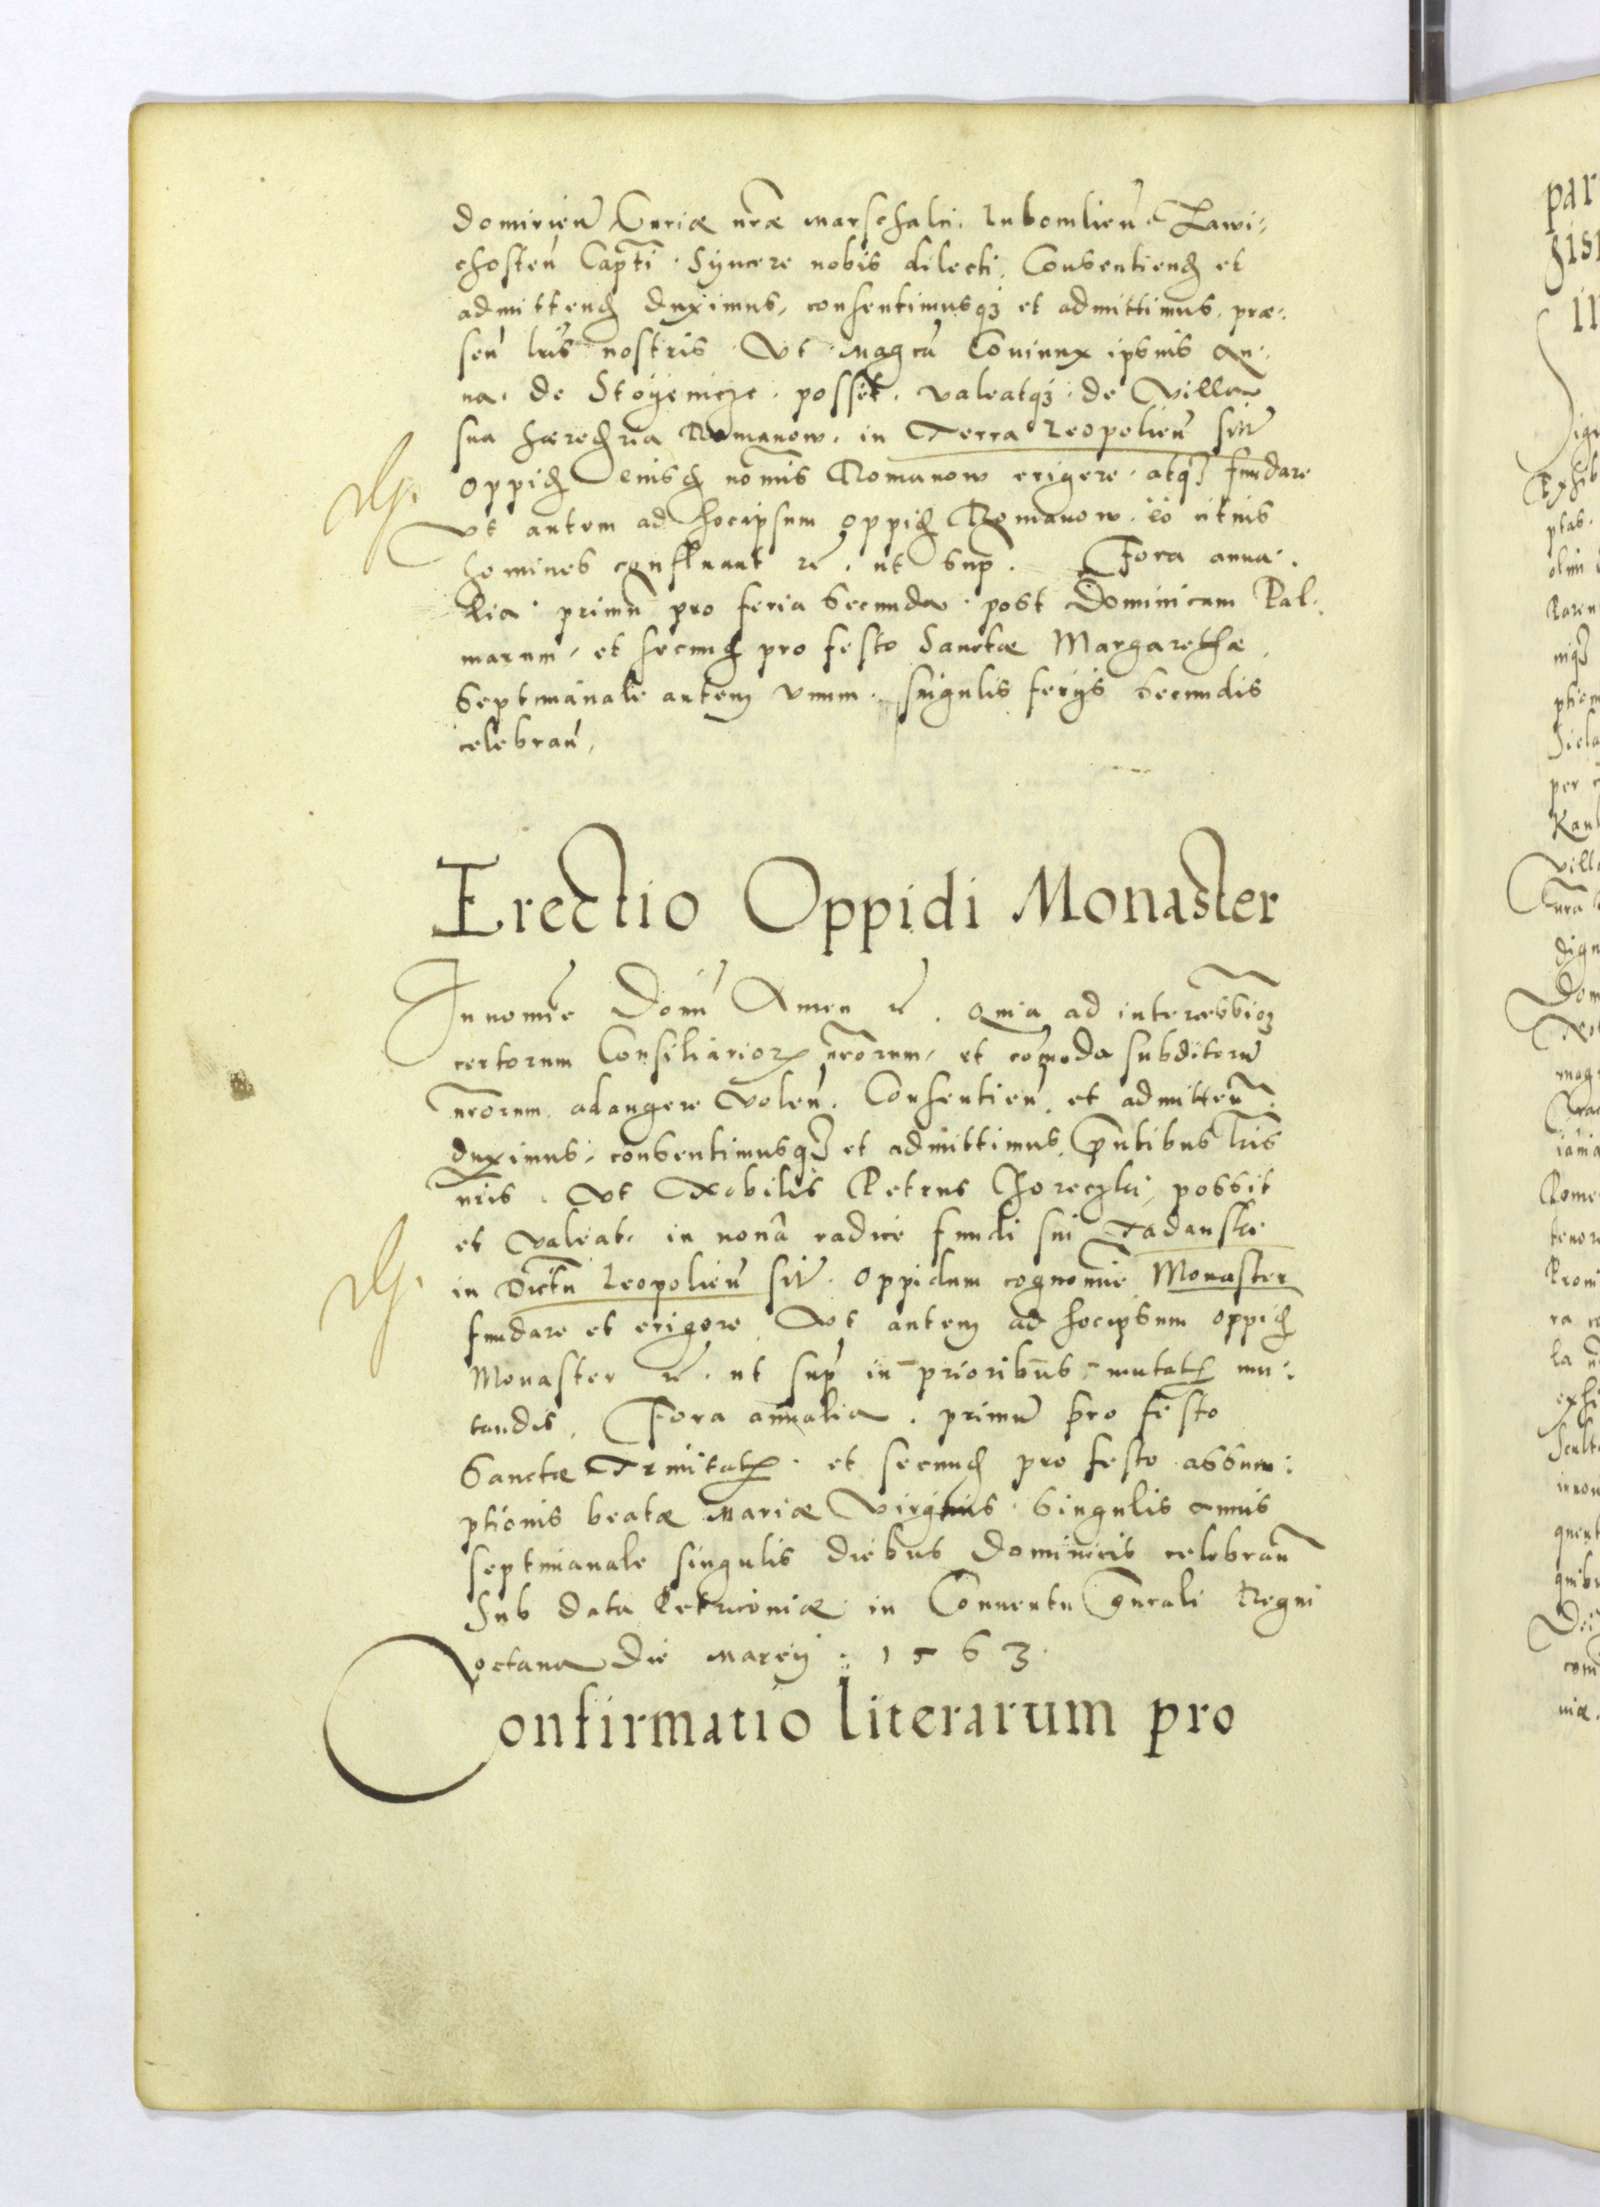 domirien Curiæ nræ Marschalci. Lubomlien et Zawi-
chosten Capti. Syncere nobis dilecti, Consentiend et
admittend duximus, consentimusq3 et admittimus, præ-
sen lris nostris. Ut Magca Coniunx ipsius An-
na. de Stoyenicze. posset. valeatq3. de Villa
sua hæredria Romanow. in Terra Leopolien sitr
oppid eiusd nomis Romanow erigere. atq3 fundare
Ut autem ad hocipsum oppid Romanow.
homines confluant rc. ut sup. Fora annua-
lia. primu pro feria secunda. post Dominicam Pal-
marum, et secund pro festo Sanctæ Margarethæ,
Septimanale autem unum. singulis ferijs secundis
celebran,
Erectio Oppidi Monaster
In nomie Domi Amen rc. Quia ad
certorum Consiliarior nrorum, et comoda subditoru
nrorum adaugere volen. Consentien, et admitten.
duximus, consentimusq3 et admittimus, pntibus lris
nris. Ut Nobilis Petrus possit
et valeat. in nona radice fundi sui Tadanskie
in Dictu Leopolien sitr. oppidum cognomie Monaster
fundare et erigere. Ut autem ad hocipsum oppid
Monaster rc. ut sup in prioribus mutat mu-
tandis. Fora annalia. primu pro festo
Sanctæ Trinitat. et secund pro festo assum-
ptionis beatæ Mariæ Virginis. Singulis annis
septimanale singulis diebus Dominicis celebran
Sub data Petricoviæ in Conuentu gnrali Regni
octaua Die Marcij. 1563.
Confirmatio literarum pro